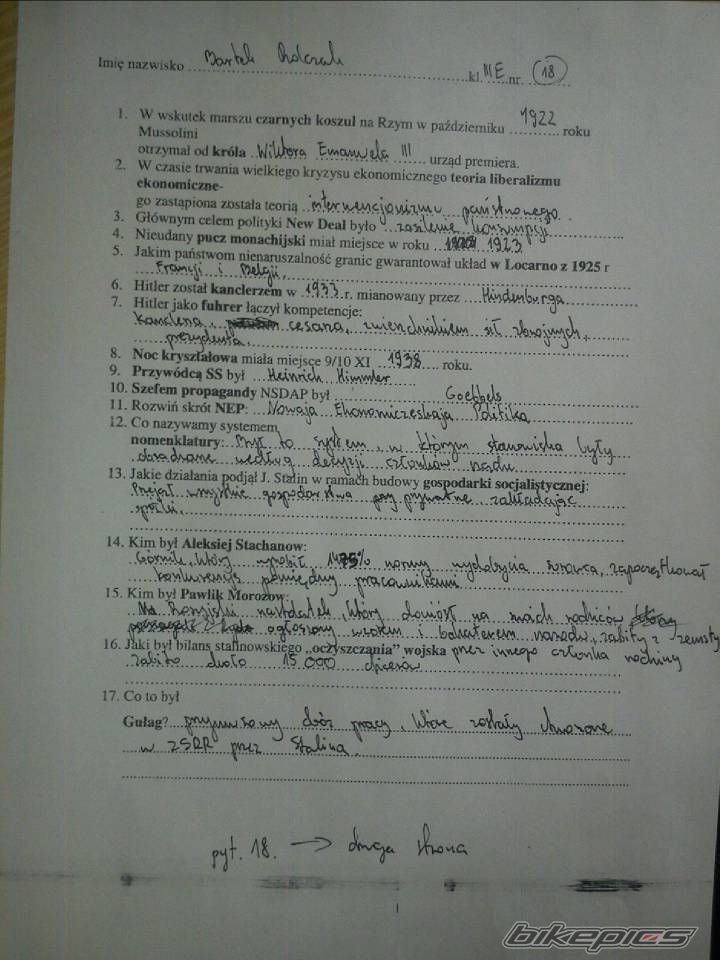 Imię nazwisko Bartek kl. III E nr. 18
1. W wskutek marszu czarnych koszul na Rzym w październiku 1922 roku
Mussolini
otrzymał od króla Wiktora Emanuela III urząd premiera.
2. W czasie trwania wielkiego kryzysu ekonomicznego teoria liberalizmu
ekonomiczne-
go zastąpiona została teorią interwencjonizmu państwowego.
3. Głównym celem polityki New Deal było zasilenie konsumpcji
4. Nieudany pucz monachijski miał miejsce w roku 1923
5. Jakim państwom nienaruszalność granic gwarantował układ w Locarno z 1925 r
Francji i Belgii,
6. Hitler został kanclerzem w 1933 r. mianowany przez Hindenburga
7. Hitler jako fuhrer łączył kompetencje:
Kanclerza, cesarza, zwierzchnikiem sił zbrojnych,
prezydenta.
8. Noc kryształowa miała miejsce 9/10 XI 1938 roku.
9. Przywódcą SS był Heinrich Himmler
10. Szefem propagandy NSDAP był Goebbels
11. Rozwiń skrót NEP: Nowaja Ekonomiczeskaja Politika
12. Co nazywamy systemem
nomenklatury: Był to system, w którym stanowiska były
obsadzane według decyzji członków
13. Jakie działania podjął J. Stalin w ramach budowy gospodarki socjalistycznej:
Przejął wszystkie gospodarstwa prywatne zakładając
spółki.
14. Kim był Aleksiej Stachanow:
Górnik, który wyrobił 1475% normy wydobycia surowca, zapoczątkował
konkurencję pomiędzy pracownikami.
15. Kim był Pawlik Morozow:
Rosyjski nastolatek, który doniósł na swoich rodziców
ogłoszony wzorem i bohaterem narodu, zabity z zemsty
przez innego członka rodziny
16. Jaki był bilans stalinowskiego „oczyszczania” wojska
zabito około 15 000 oficerów
17. Co to był
Gułag? przymusowy obóz pracy, które zostały utworzone
w ZSRR przez Stalina.
pyt. 18. → druga strona
1
bikepics